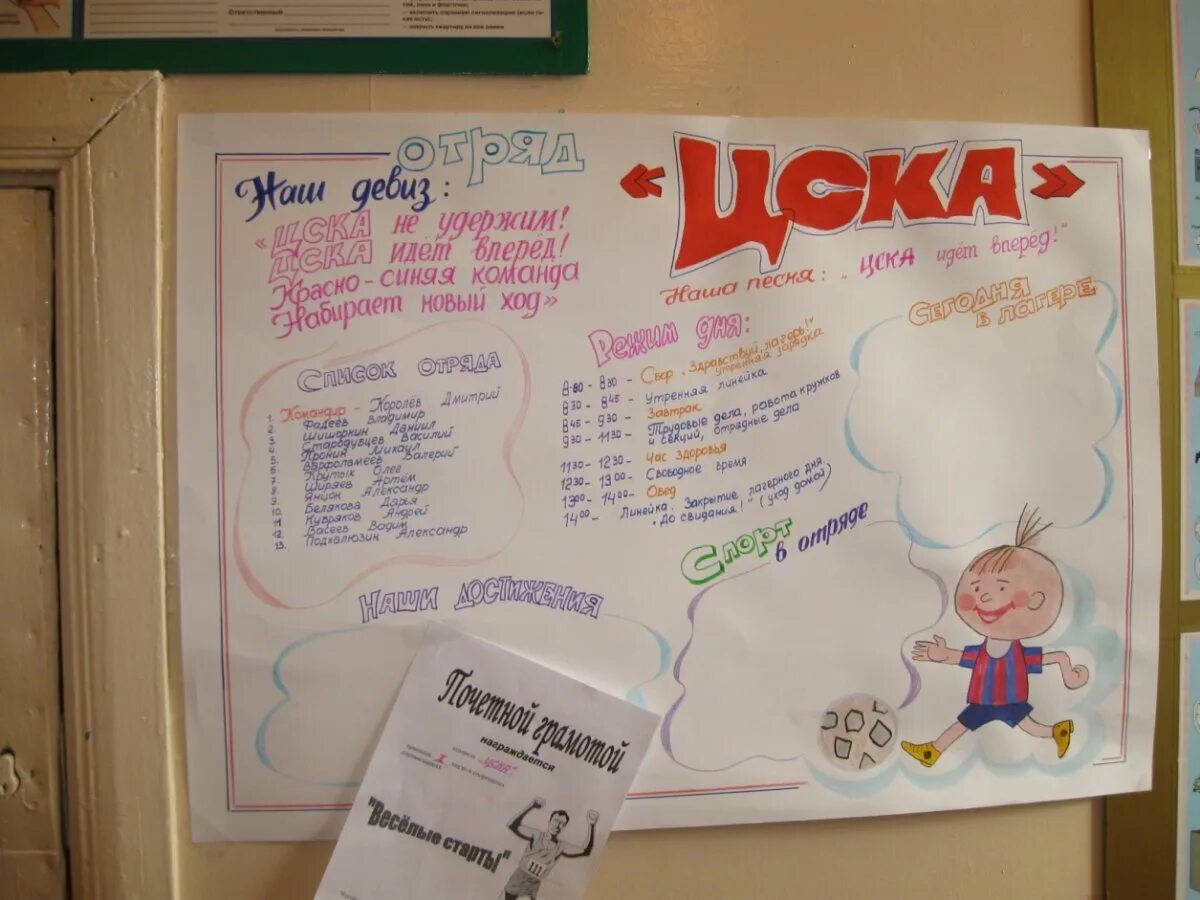 Ответственный
ОТРЯД
«ЦСКА»
Наш девиз:
«ЦСКА не удержим!
ЦСКА идёт вперёд!
Красно-синяя команда
Набирает новый ход»
Наша песня: „ЦСКА идёт вперед!"
Список отряда
1. Командир - Королёв Дмитрий
2. Фадеев Владимир
3. Шишоркин Даниил
4. Стародубцев Василий
5. Пронин Михаил
6. Варфоламеев Валерий
7. Крутых Олег
8. Ширяев Артём
9. Янион Александр
10. Белякова Дарья
11. Кувряков Андрей
12. Васеев Вадим
13. Подкалюзин Александр
Режим дня:
8 00 - 8 30 - Сбор „Здравствуй, лагерь!"
утренняя зарядка
8 30 - 8 45 - Утренняя линейка
8 45 - 9 30 - Завтрак
9 30 - 11 30 - Трудовые дела, работа кружков
и секций, отрядные дела
11 30 - 12 30 - Час здоровья
12 30 - 13 00 - Свободное время
13 00 - 14 00 - Обед
14 00 - Линейка. Закрытие лагерного дня
„До свидания!" (уход домой)
Сегодня
в лагере
Спорт
в отряде
Наши достижения
Почетной грамотой
награждается
команда „ЦСКА"
I место в
"Весёлые старты"
111